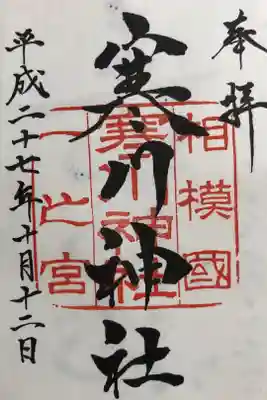 奉拝
寒川神社
相模國
寒川神社
一之宮
平成二十七年十月十二日